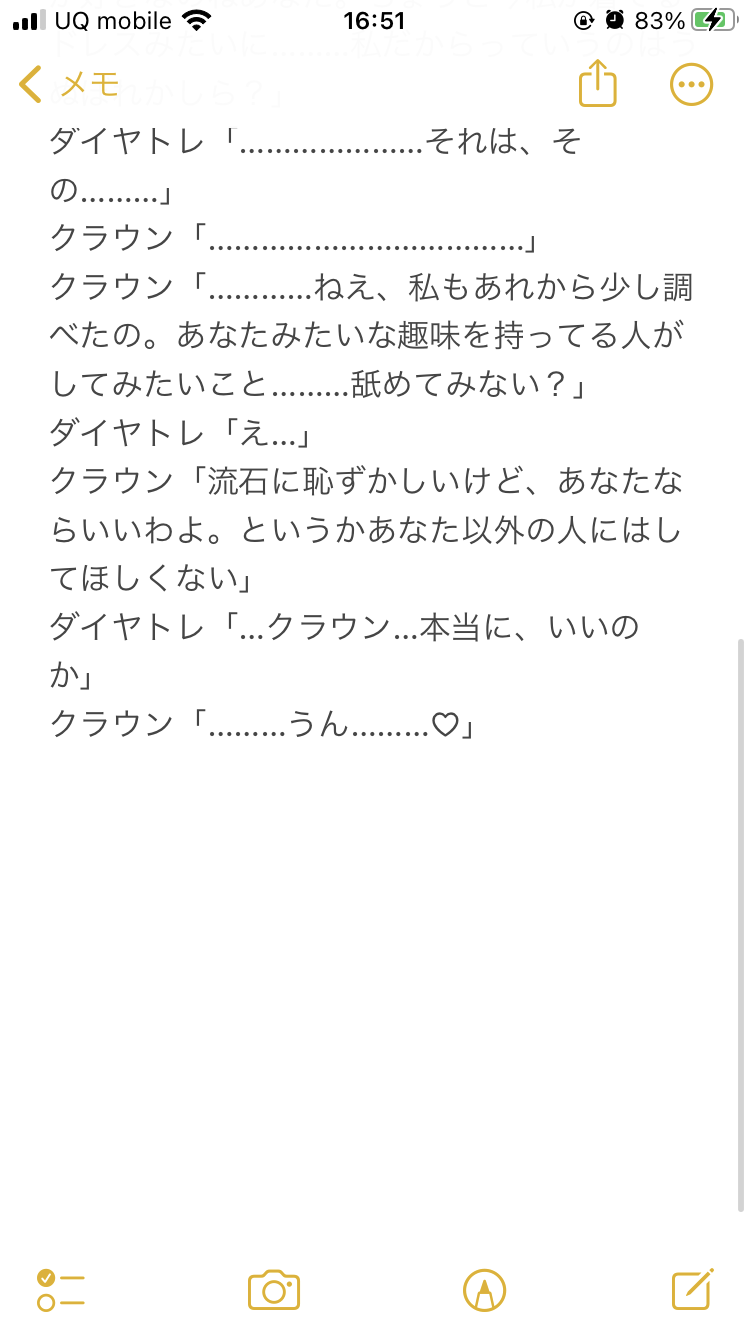 UQ mobile 16:51 83%
ドレスみたいに………私だからっていうのはう
ぬぼれかしら？」
メモ
ダイヤトレ「…………………それは、そ
の………」
クラウン「………………………………」
クラウン「…………ねえ、私もあれから少し調
べたの。あなたみたいな趣味を持ってる人が
してみたいこと………舐めてみない？」
ダイヤトレ「え…」
クラウン「流石に恥ずかしいけど、あなたな
らいいわよ。というかあなた以外の人にはし
てほしくない」
ダイヤトレ「…クラウン…本当に、いいの
か」
クラウン「………うん………♡」